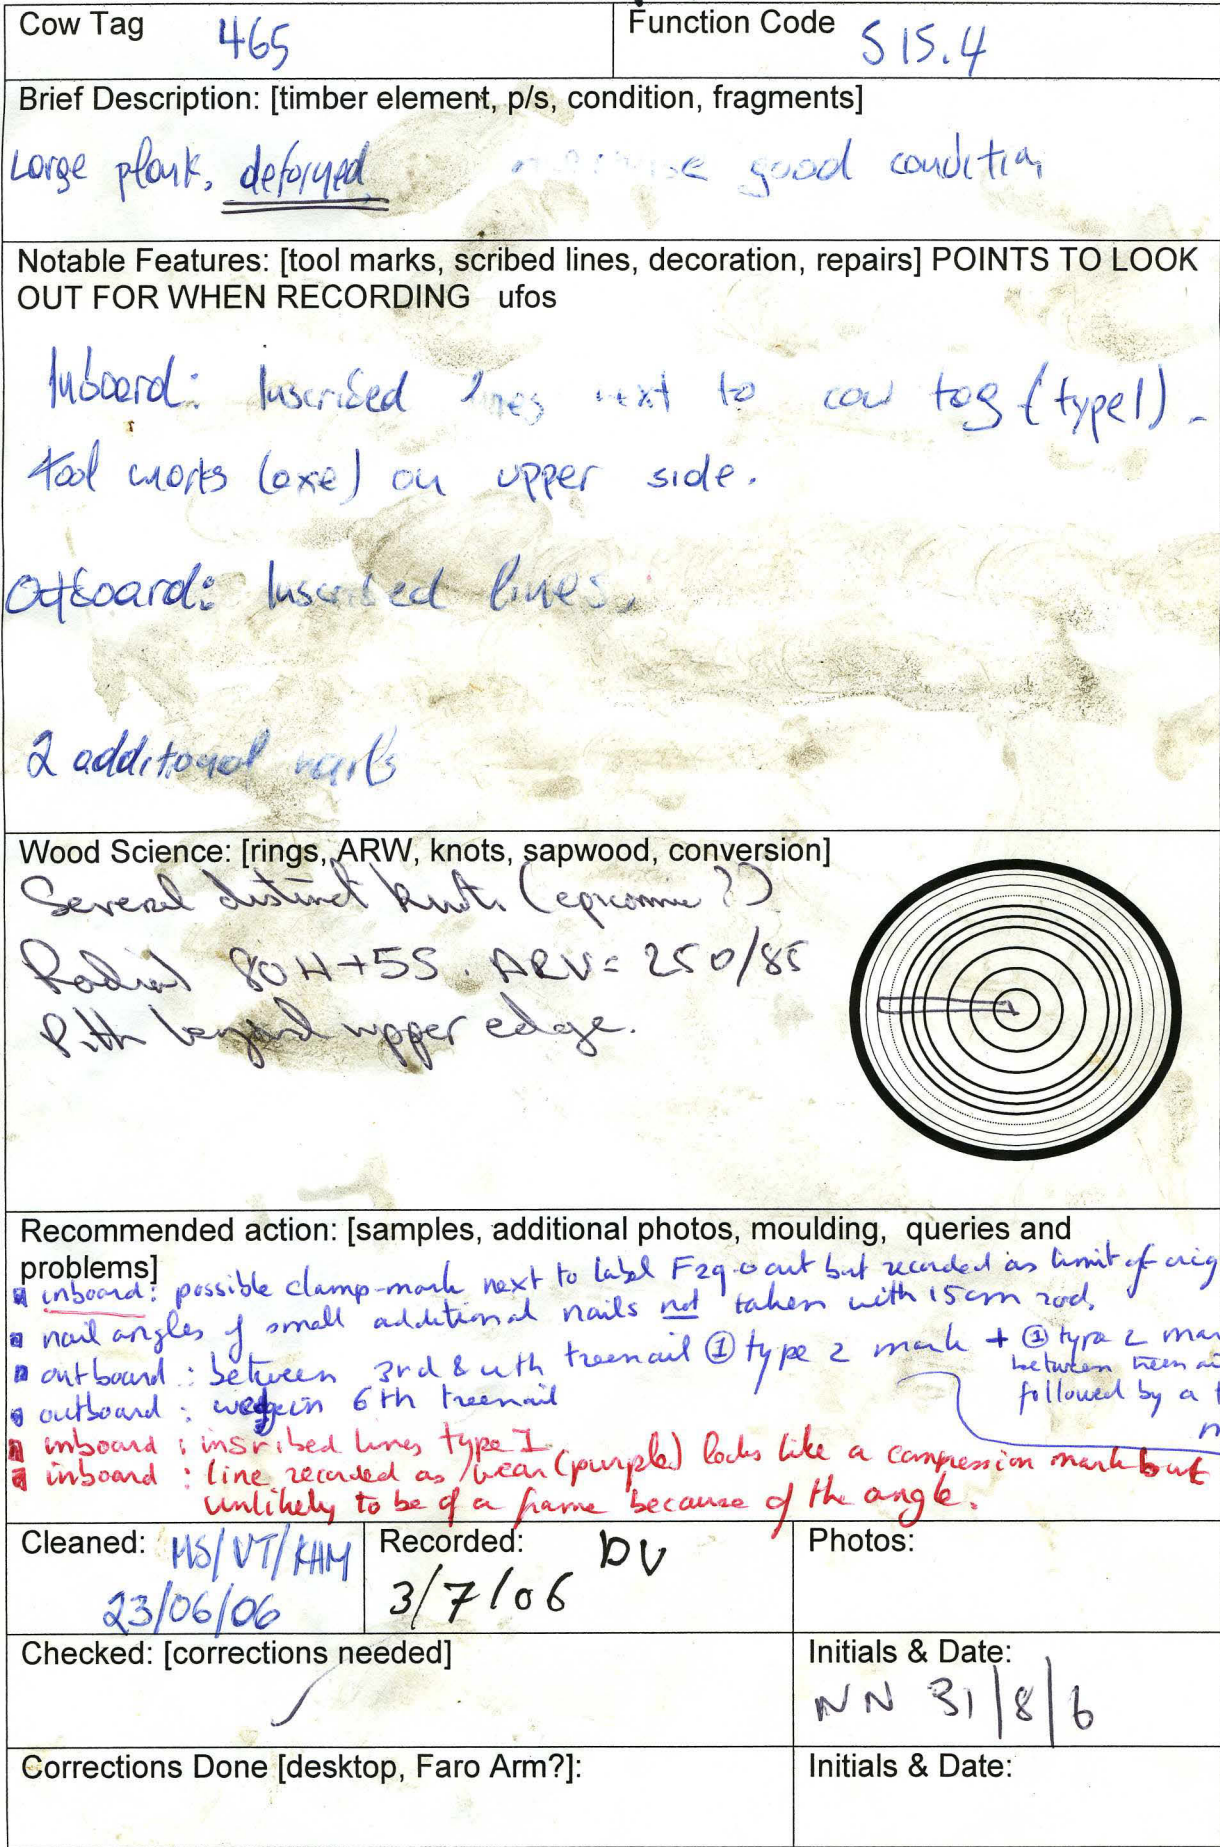 Cow Tag 465
Function Code S15.4
Brief Description: [timber element, p/s, condition, fragments]
Large plank, deformed good condition
Notable Features: [tool marks, scribed lines, decoration, repairs] POINTS TO LOOK
OUT FOR WHEN RECORDING ufos
Inboard: Inscribed lines next to cow tag (type1).
tool marks (axe) on upper side.
Outboard: Inscribed lines.
2 additional nails
Wood Science: [rings, ARW, knots, sapwood, conversion]
Several distinct knots (epicormic?)
Radial 80H+5S. ARW= 250/85
Pith beyond upper edge.
Recommended action: [samples, additional photos, moulding, queries and
problems]
inboard: possible clamp-mark next to label F29 but recorded as limit of orig
nail angles of small additional nails not taken with 15cm rod.
outboard: between 3rd & 4th treenail ① type 2 mark + ① type 2 mar
between treenai
followed by a t
outboard: wedge in 6th treenail
inboard: insribed lines type I
inboard: line recorded as wear (purple) looks like a compression mark but
unlikely to be of a frame because of the angle.
Cleaned: MS/VT/KHM
23/06/06
Recorded: DV
3/7/06
Photos:
Checked: [corrections needed]
Initials & Date:
NN 31/8/6
Corrections Done [desktop, Faro Arm?]:
Initials & Date: